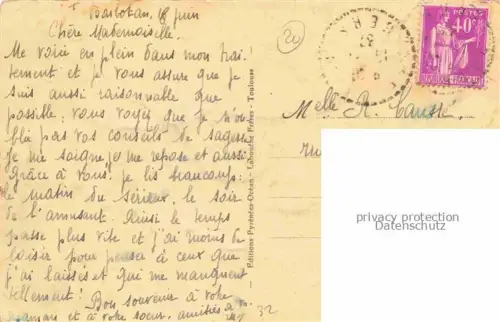 Barbotan, 18 juin
Chère Mademoiselle,
Me voici en plein dans mon trai-
tement et je vous assure que je
suis aussi raisonnable que
possible; vous voyez que je n'ou-
blie pas vos conseils de sagesse
Je me soigne, je me repose et aussi
grâce à vous je lis beaucoup:
le matin du sérieux, le soir
de l'amusant. Ainsi le temps
passe plus vite et j'ai moins de
loisir pour penser à ceux que
j'ai laissés et qui me manquent
tellement! Bon souvenir à votre
maman et à votre soeur, amitiés à
Editions Pyrénées-Océan - Labouche Frères - Toulouse
20
POSTES
40c
Melle R. Causse
privacy protection
Datenschutz
32